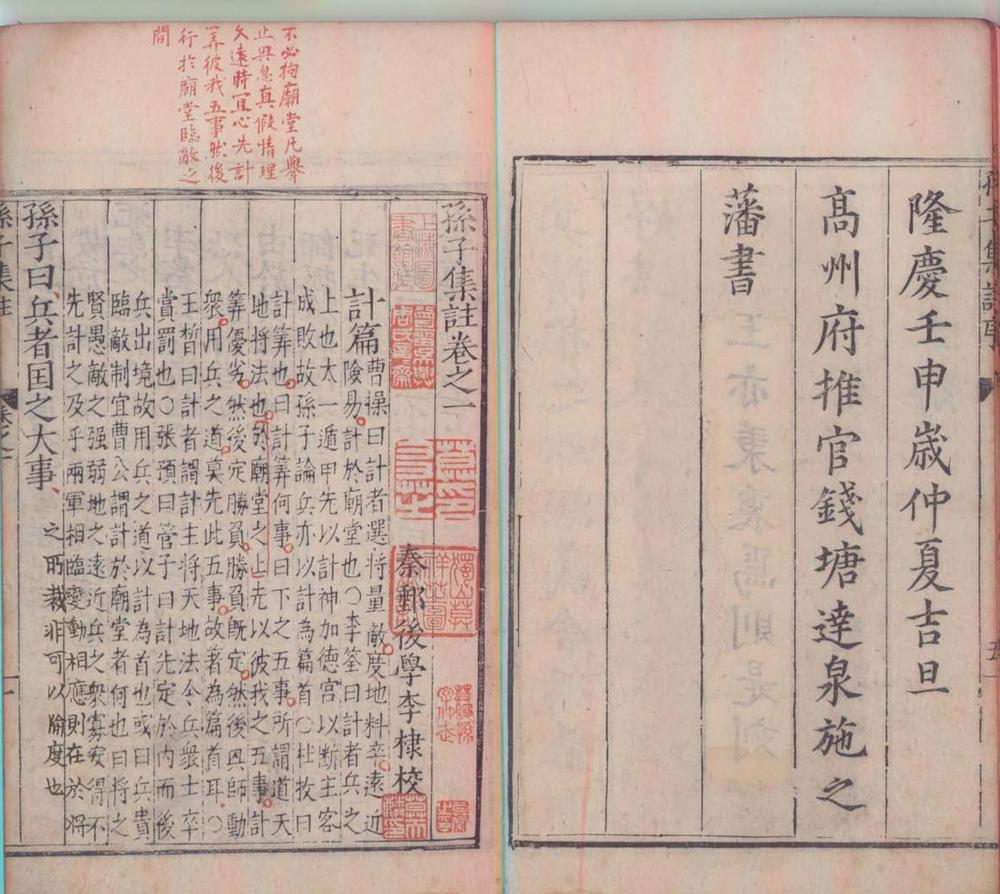 隆慶壬申歲仲夏吉旦
高州府推官錢塘達泉施之
藩書
不必拘廟堂凡舉
止與息真假情理
久遠時宜心先計
筭彼我五事然後
行於廟堂臨敵之
間
孫子集註卷之一
秦郵後學李棣校
計篇
曹操曰計者選將量敵度地料卒遠近
險易計於廟堂也〇李筌曰計者兵之
上也太一遁甲先以計神加德宮以斷主客
成敗故孫子論兵亦以計為篇首〇杜牧曰
計筭也曰計筭何事曰下之五事所謂道天
地將法也於廟堂之上先以彼我之五事計
筭優劣然後定勝負勝負旣定然後興師動
衆用兵之道莫先此五事故著為篇首耳〇
王晳曰計者謂計主將天地法令兵衆士卒
賞罰也〇張預曰管子曰計先定於內而後
兵出境故用兵之道以計為首也或曰兵貴
臨敵制宜曹公謂計於廟堂者何也曰將之
賢愚敵之强弱地之遠近兵之衆寡安得不
先計之及乎兩軍相臨變動相應則在於將
之所裁非可以隃度也
孫子曰兵者国之大事
孫子集註
卷之一
一